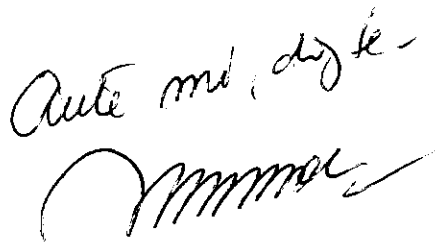 Ante mí, doy fe-